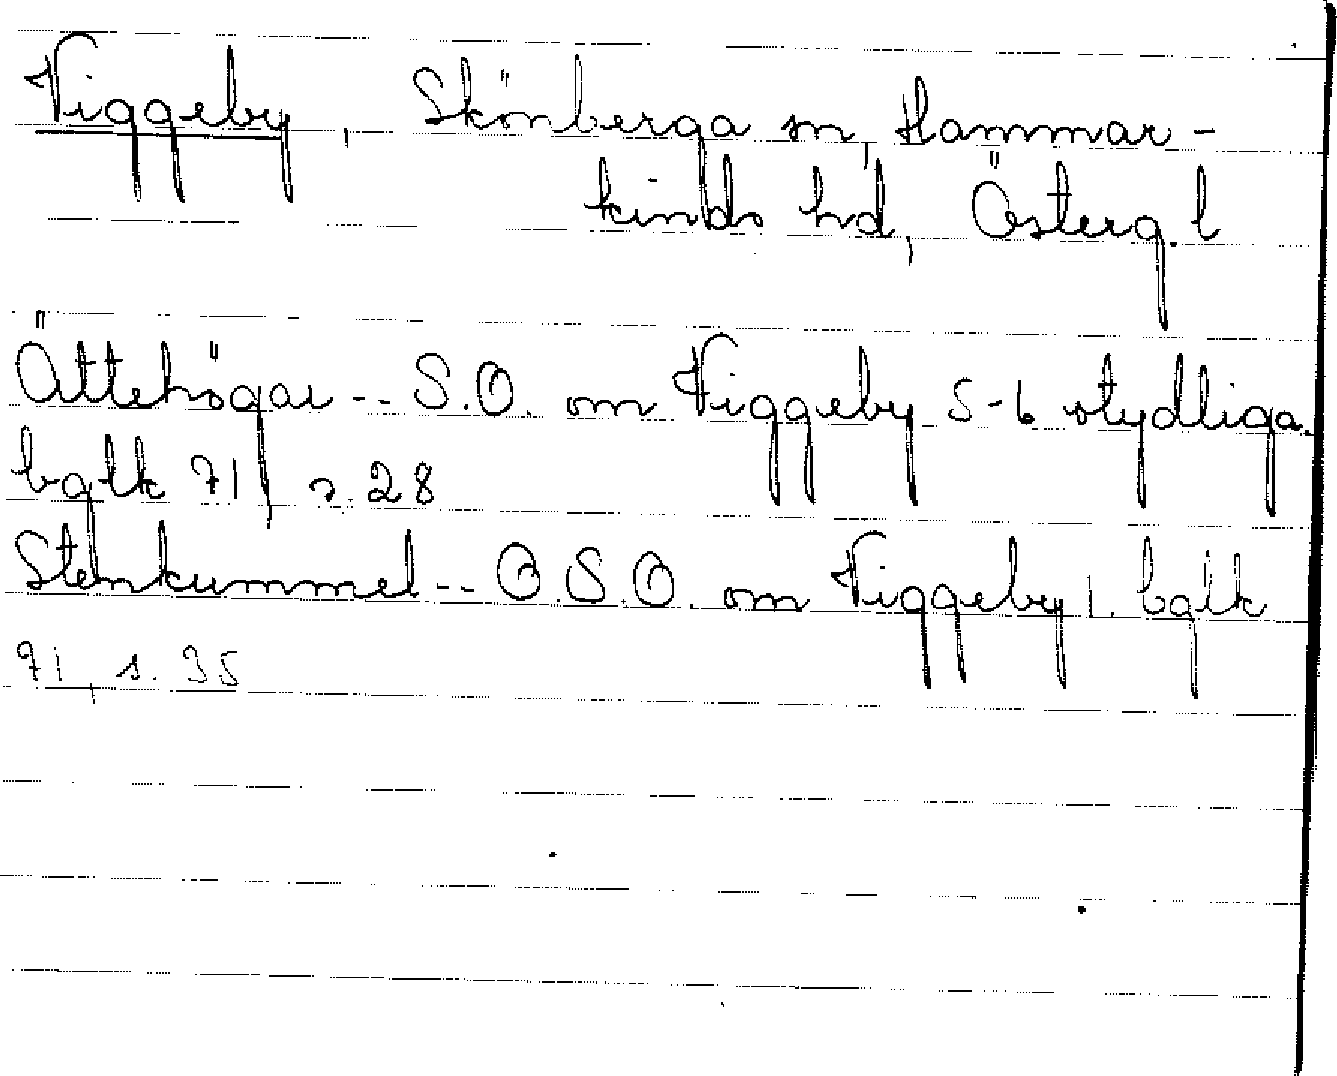 Viggeby, Skönberga sn, Hammar-
kinds hd, Österg. l
Ättehögar -- S.O. om Viggeby 5-6 otydliga.
bglk 71, s. 28
Stenkummel -- O.S.O. om Viggeby 1. bglk
71, s. 35